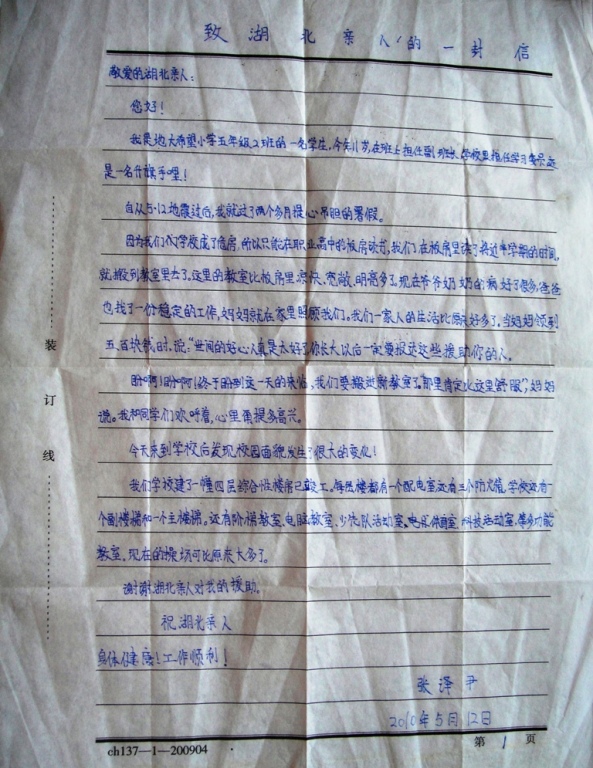 致湖北亲人的一封信
敬爱的湖北亲人：
您好！
我是地大希望小学五年级2班的一名学生，今年11岁，在班上担任副班长、学校里担任学习委员还
是一名升旗手哩！
自从5·12地震过后，我就过了两个多月提心吊胆的暑假。
因为我们的学校成了危房，所以只能在职业高中的板房读书，我们在板房里读了将近半学期的时间，
就搬到教室里去了。这里的教室比板房里凉快、宽敞、明亮多了。现在爷爷奶奶的病好了很多，爸爸
也找了一份稳定的工作，妈妈就在家里照顾我们。我们一家人的生活比原来好多了。当妈妈领到
五百块钱时，说：“世间的好心人真是太好了，你长大以后一定要报达这些援助你的人。
盼啊！盼啊！终于盼到这一天的来临，我们要搬进新教室了。“那里肯定比这里舒服”，妈妈
说。我和同学们欢呼着，心里甭提多高兴。
今天来到学校后发现，校园面貌发生了很大的变化！
我们学校建了一幢四层综合性楼房已竣工。每层楼都有一个配电室还有三个防火箱，学校还有一
个副楼梯和一个主楼梯。还有阶梯教室、电脑教室、少先队活动室、音乐、体育室、科技活动室，等多功能
教室。现在的操场可比原来大多了。
谢谢湖北亲人对我的援助。
祝湖北亲人
身体健康！工作顺利！
张泽尹
2010年5月12日
装
订
线
ch137—1—200904
第 1 页